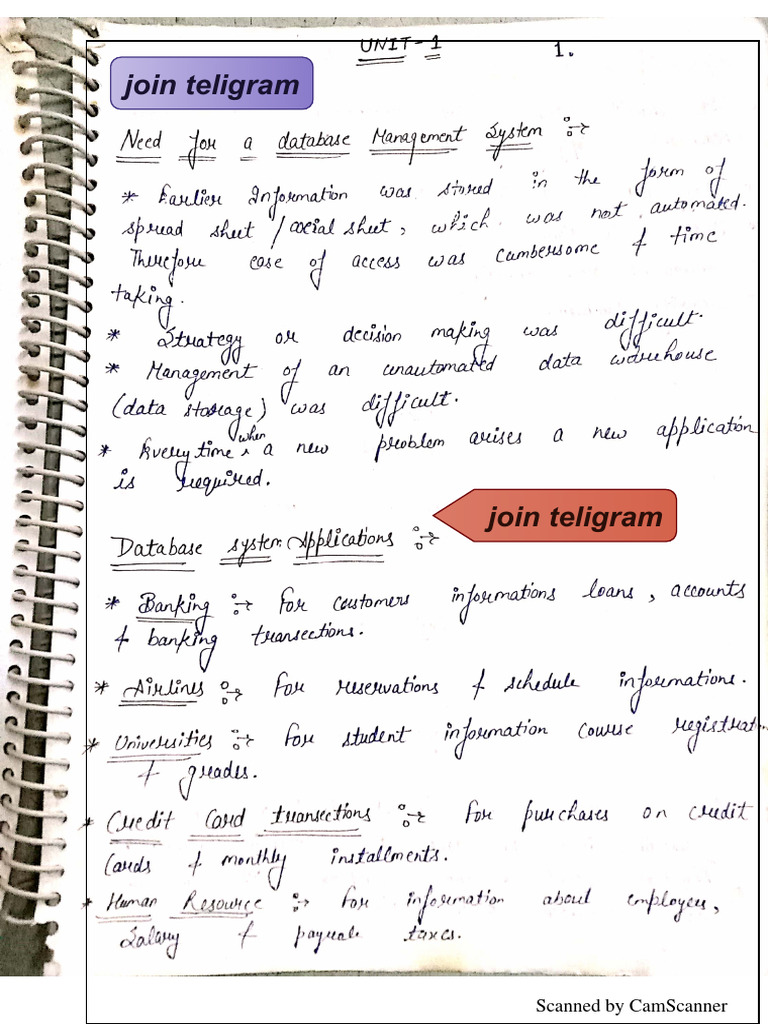 UNIT-1 1.
join teligram
Need for a database Management System :→
* Earlier Information was stored in the form of
spread sheet / social sheet, which was not automated.
Therefore ease of access was cumbersome & time
taking.
* Strategy or decision making was difficult.
* Management of an unautomated data warehouse
(data storage) was difficult.
* Everytime when a new problem arises a new application
is required.
join teligram
Database system Applications :→
* Banking :→ For customers informations loans, accounts
& banking transections.
* Airlines :→ For reservations & schedule informations.
* Universities :→ For student information course registrat
& grades.
* Credit Card transections :→ For purchases on credit
Cards & monthly installments.
* Human Resource :→ For information about employees,
Salary & taxes.
Scanned by CamScanner